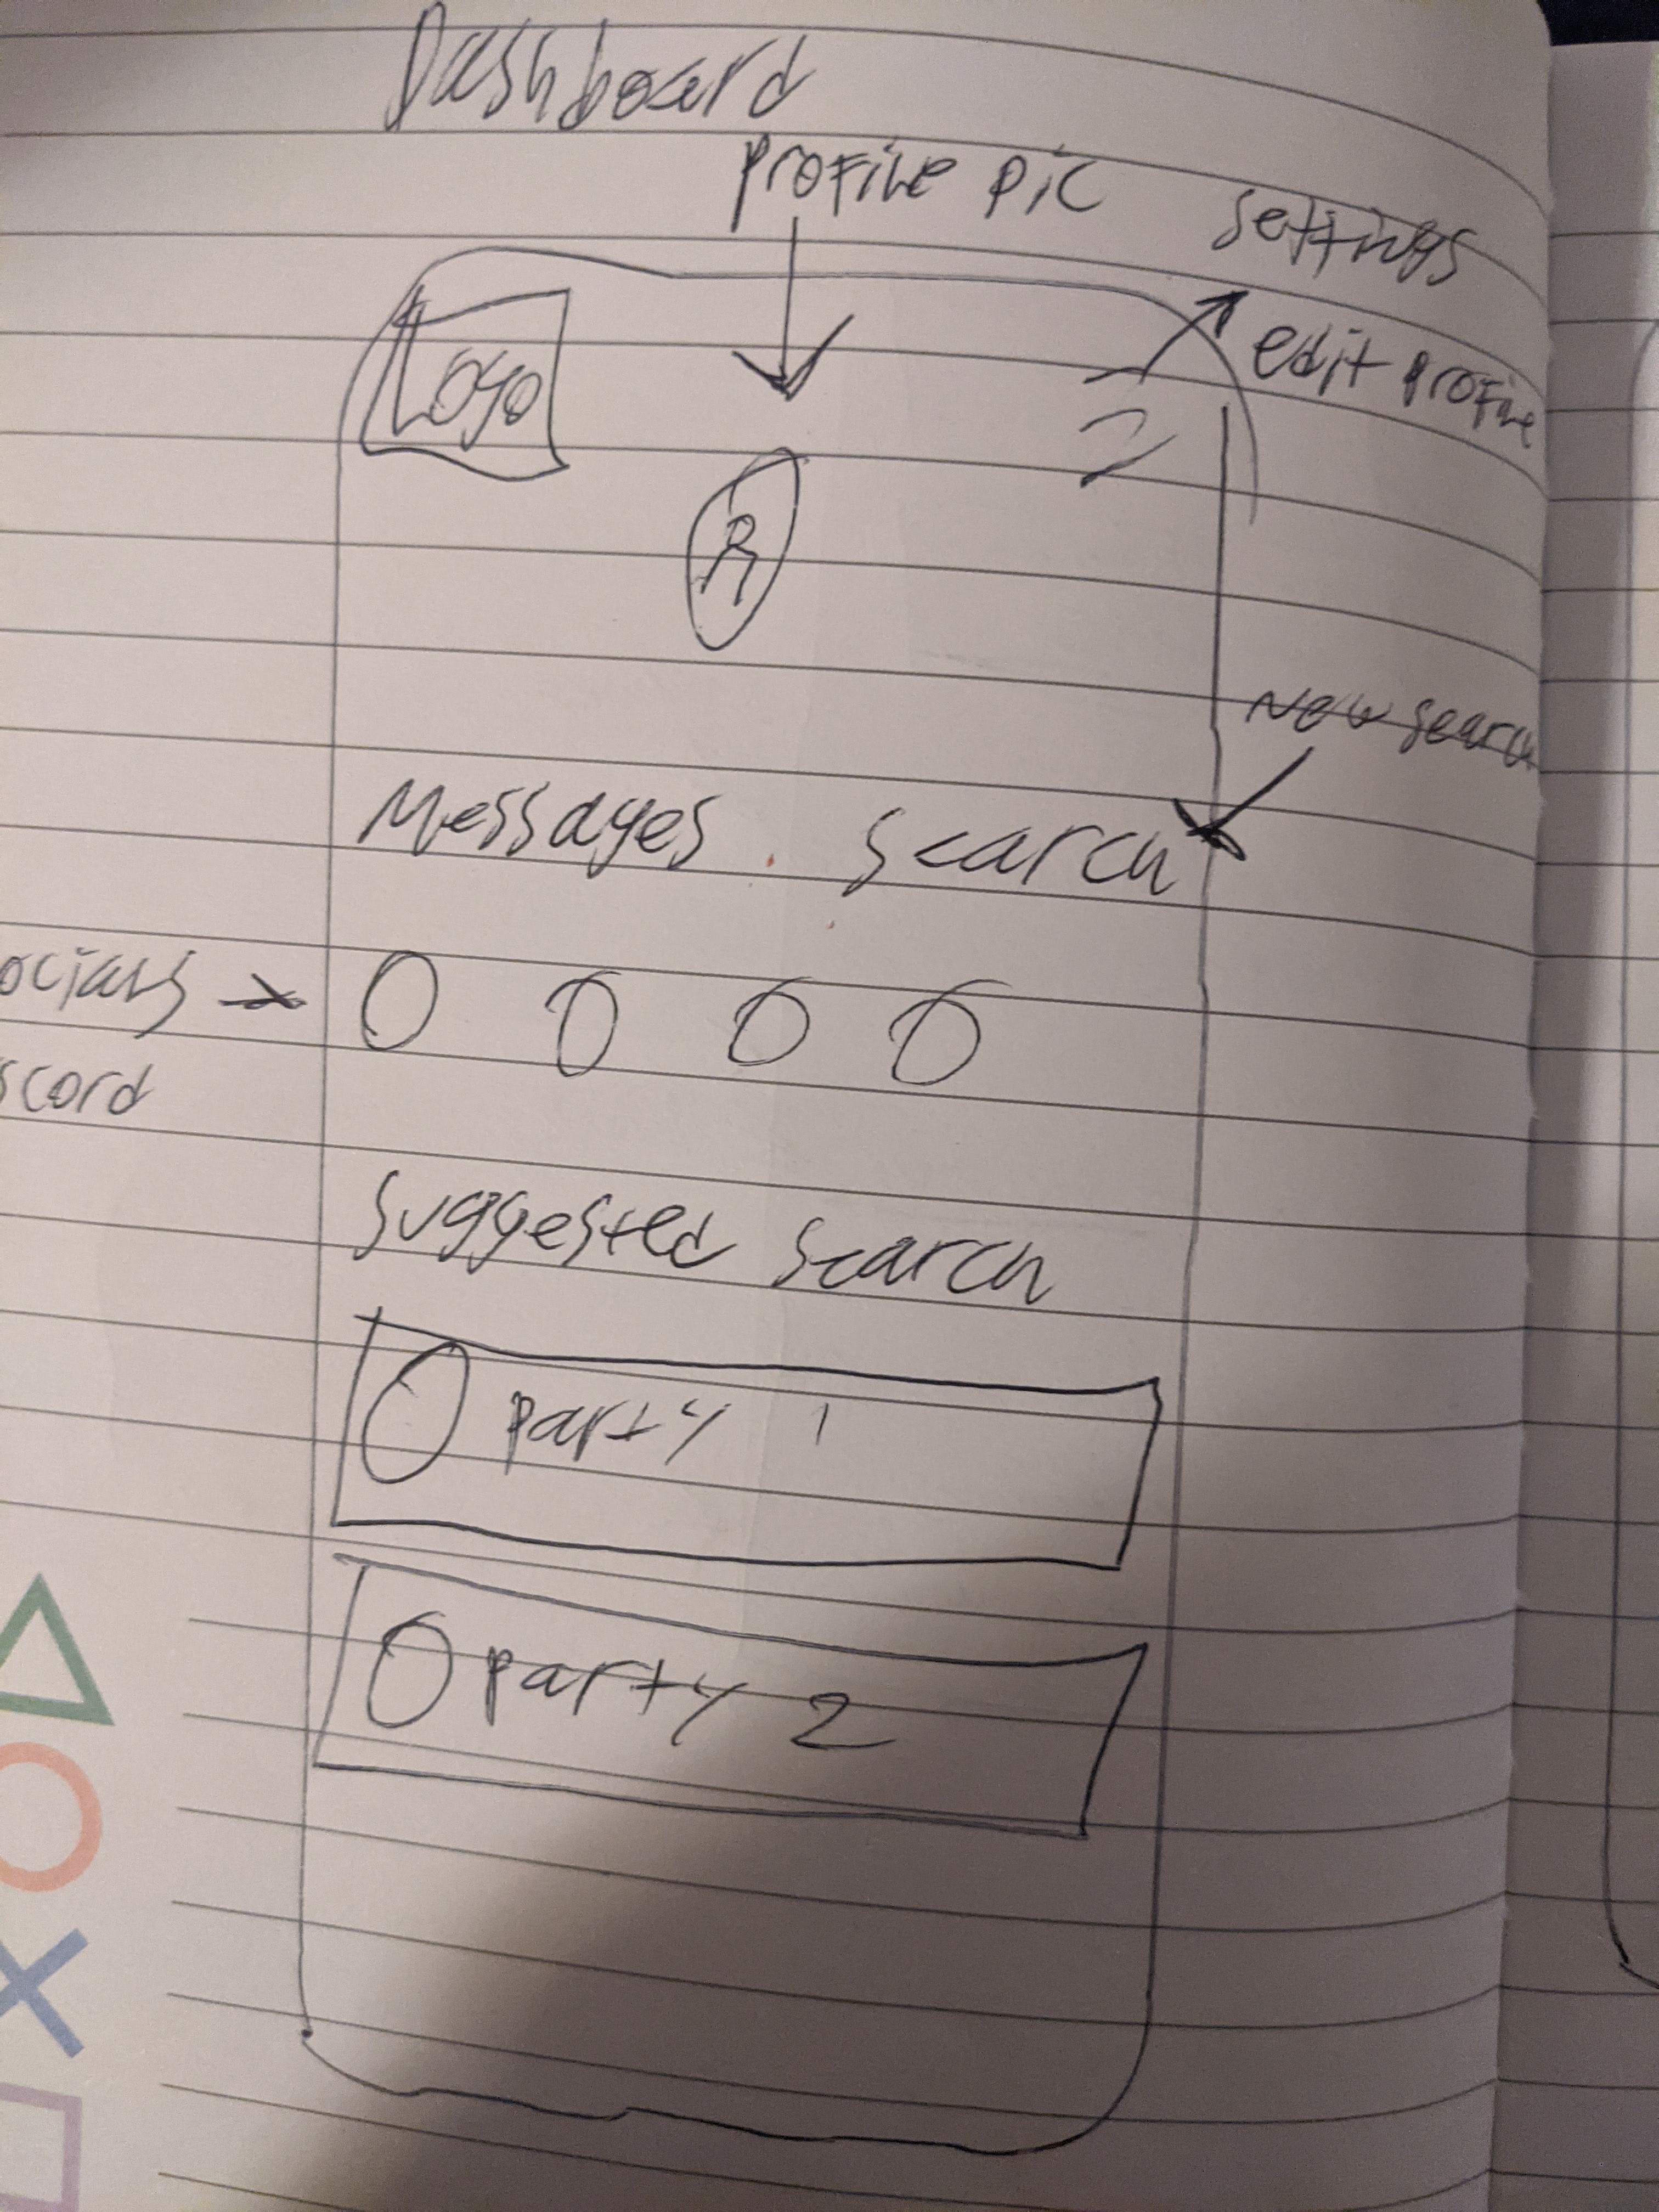 Dashboard
Profile pic
settings
edit profile
Logo
R
New search
Messages search
ocials
scord
suggested search
party 1
party 2